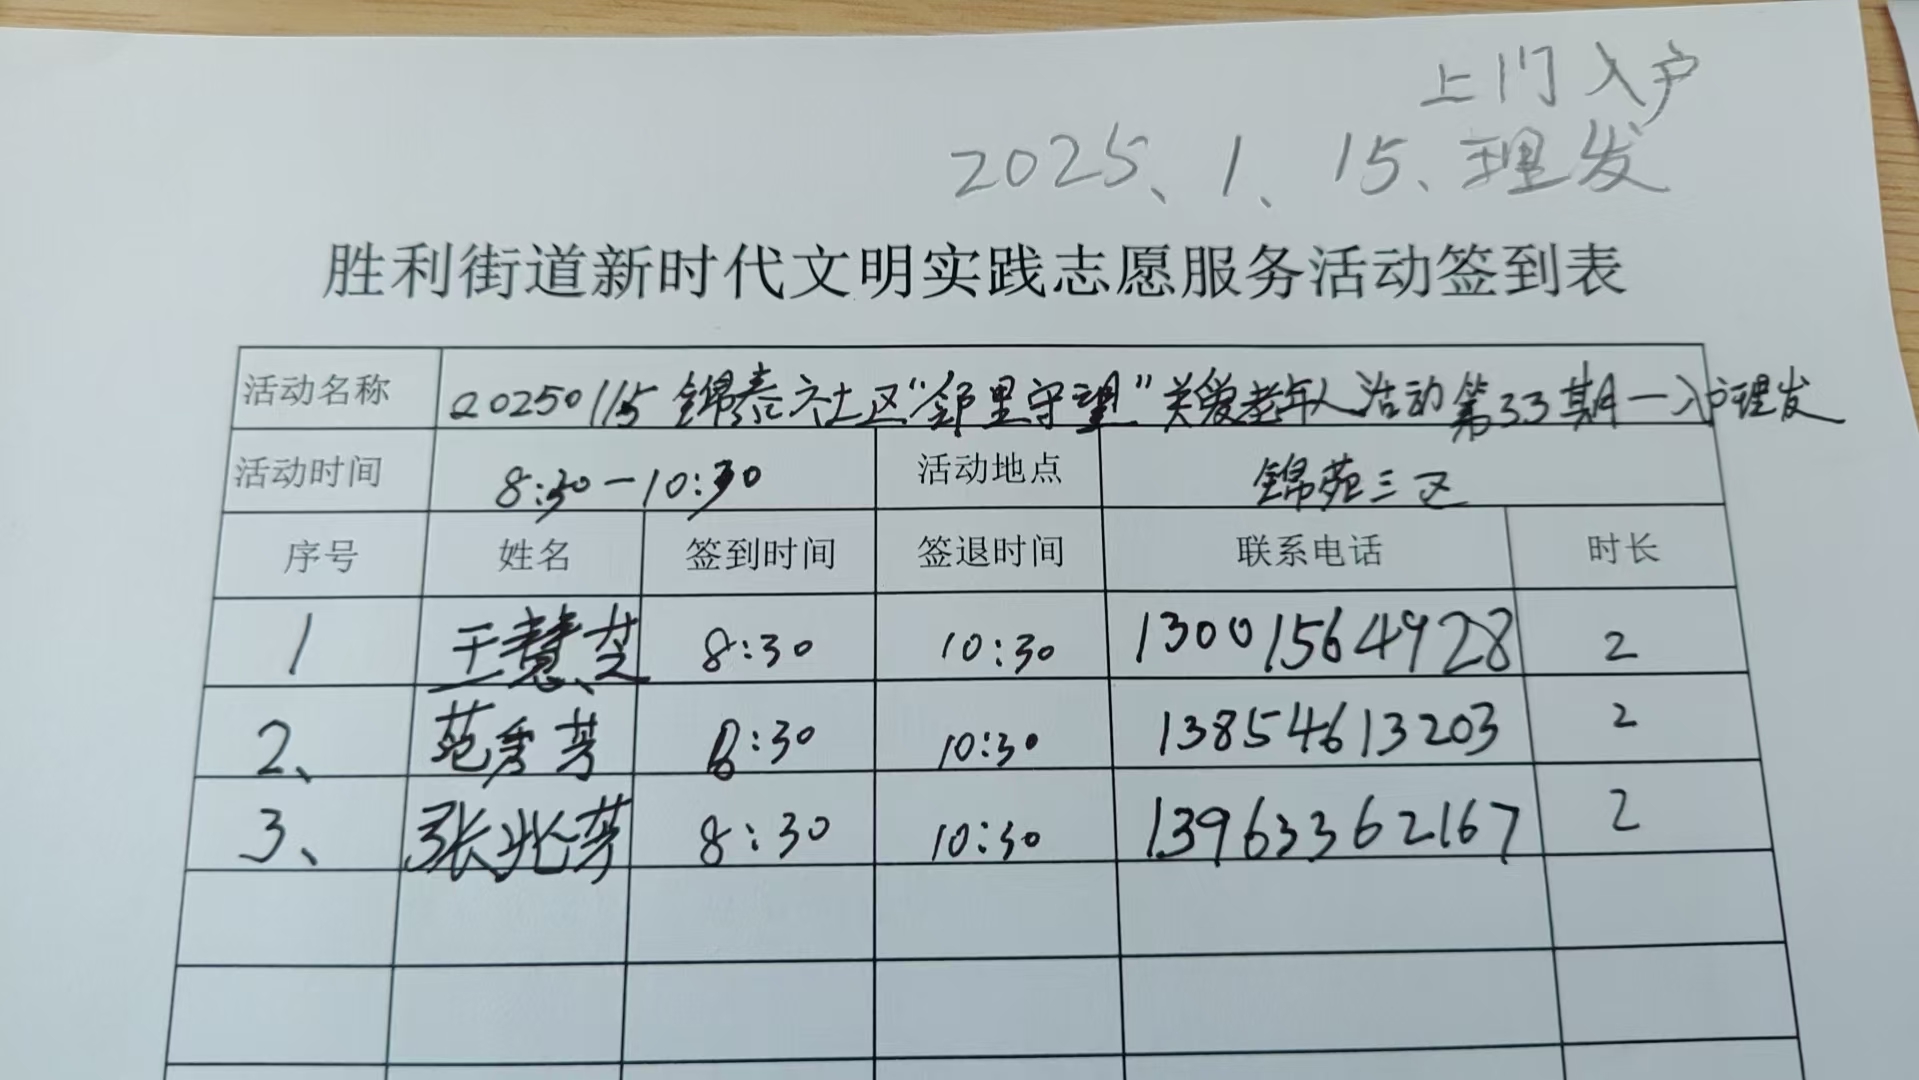 上门入户
2025、1、15、理发
胜利街道新时代文明实践志愿服务活动签到表
活动名称 20250115 锦泰社区“邻里守望”关爱老年人活动第33期—入户理发
活动时间 8:30—10:30 活动地点 锦苑三区
序号 姓名 签到时间 签退时间 联系电话 时长
1 王慧芝 8:30 10:30 13001564928 2
2、 范秀芳 8:30 10:30 13854613203 2
3、 张兆芳 8:30 10:30 13963362167 2